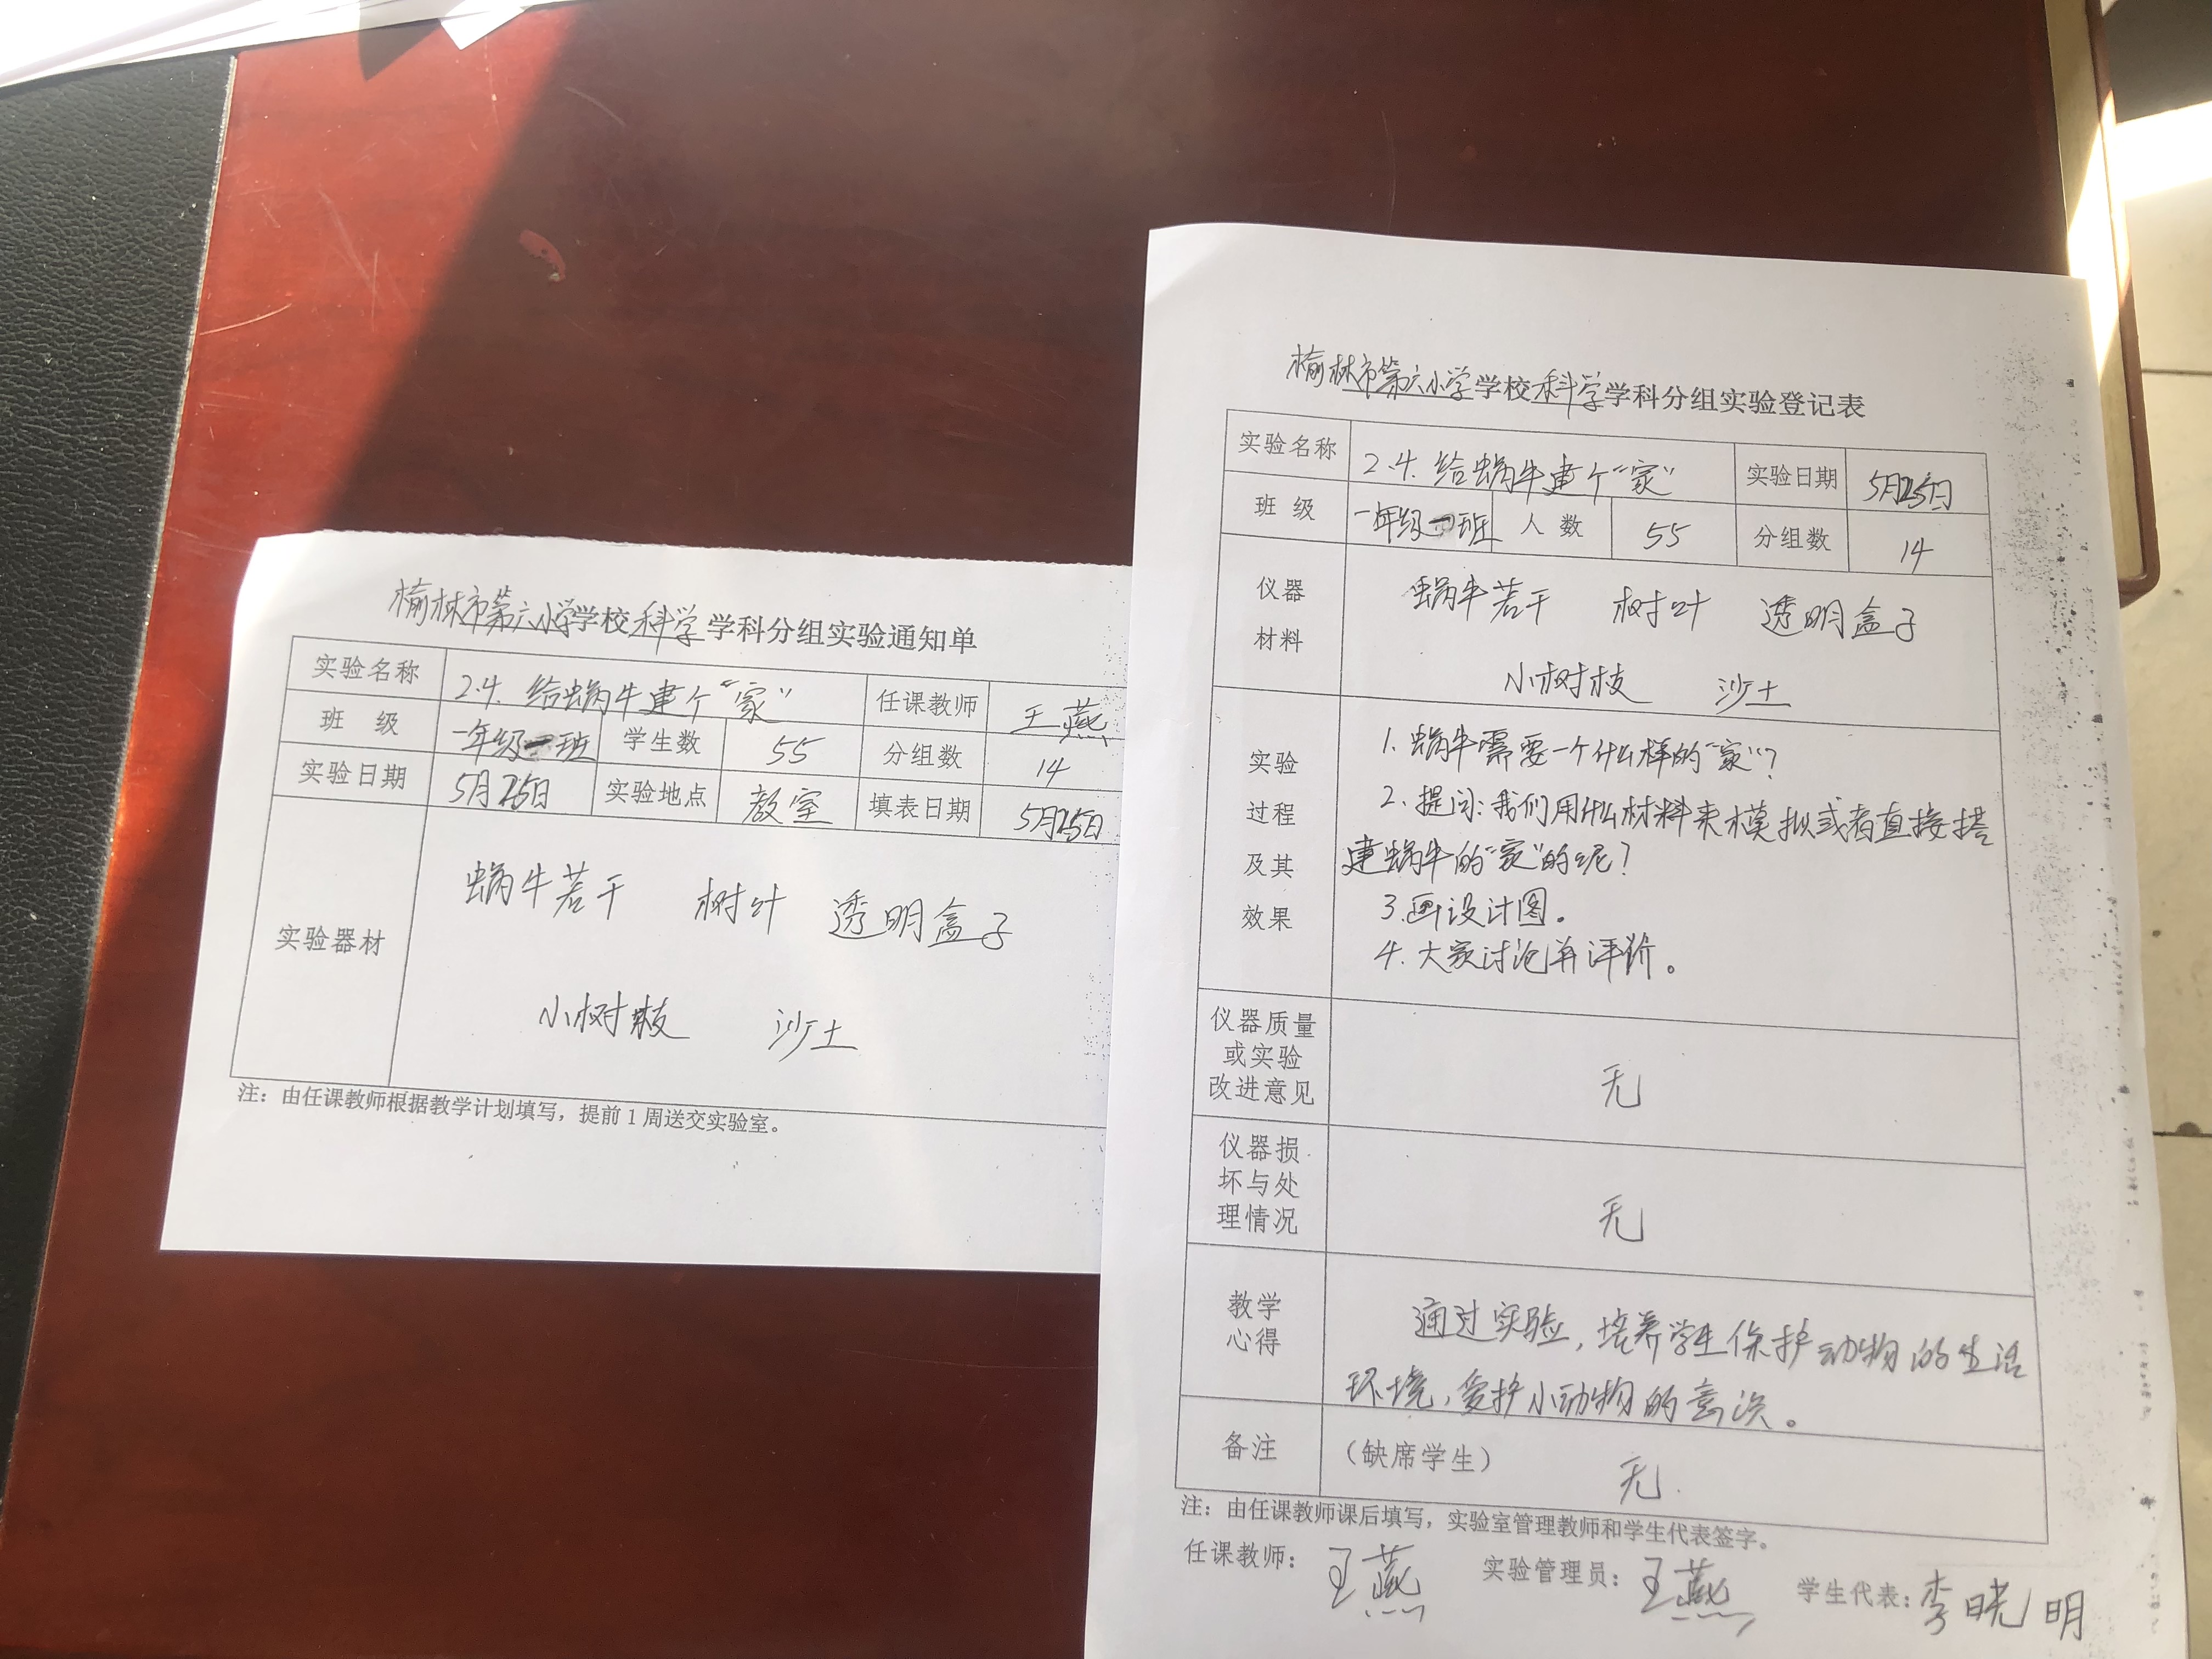 榆林市第六小学学校科学学科分组实验通知单
实验名称 2.4.给蜗牛建个“家” 任课教师 王燕
班 级 一年级一班 学生数 55 分组数 14
实验日期 5月25日 实验地点 教室 填表日期 5月25日
实验器材
蜗牛若干 树叶 透明盒子
小树枝 沙土
注：由任课教师根据教学计划填写，提前1周送交实验室。
榆林市第六小学学校科学学科分组实验登记表
实验名称 2.4.给蜗牛建个“家” 实验日期 5月25日
班 级 一年级一班 人 数 55 分组数 14
仪器
材料
蜗牛若干 树叶 透明盒子
小树枝 沙土
实验
过程
及其
效果
1.蜗牛需要一个什么样的“家”？
2.提问：我们用什么材料来模拟或者直接搭
建蜗牛的“家”的呢？
3.画设计图。
4.大家讨论并评价。
仪器质量
或实验
改进意见
无
仪器损
坏与处
理情况
无
教学
心得
通过实验，培养学生保护动物的生活
环境，爱护小动物的意识。
备注 （缺席学生） 无
注：由任课教师课后填写，实验室管理教师和学生代表签字。
任课教师：王燕 实验管理员：王燕 学生代表：李晓明